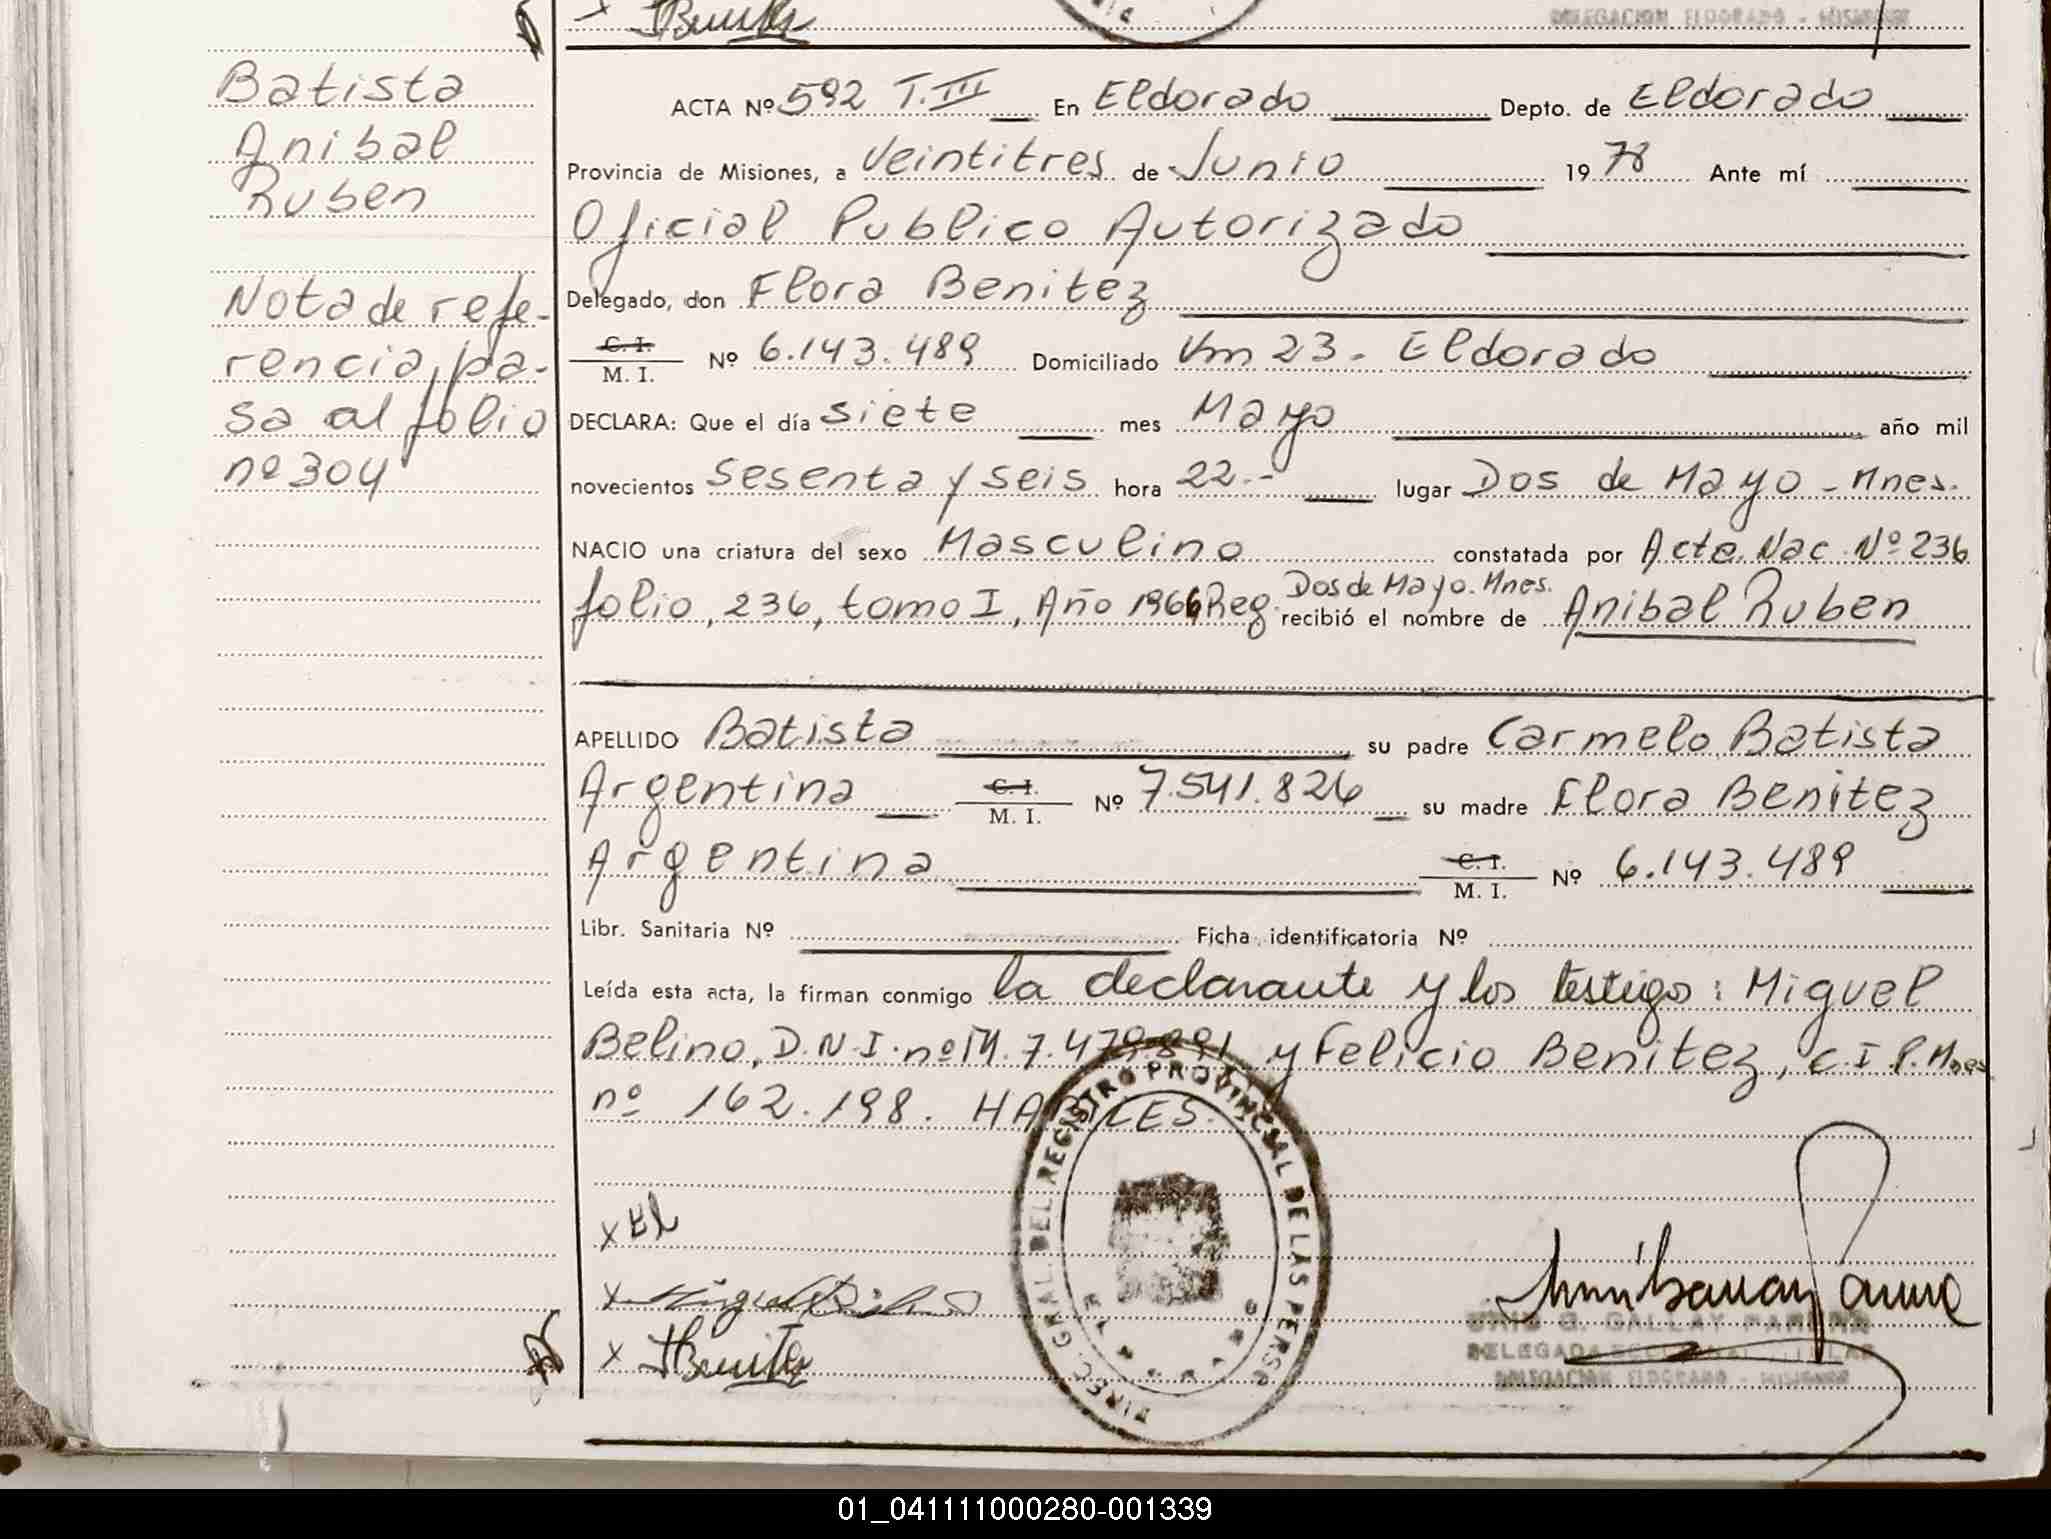 DELEGACION ELDORADO - MISIONES
Batista
Anibal
Ruben
Nota de refe-
rencia, pa-
sa al folio
nº 304
ACTA Nº 592 T. III En Eldorado Depto. de Eldorado
Provincia de Misiones, a Veintitres de Junio 1978 Ante mí
Oficial Publico Autorizado
Delegado, don Flora Benitez
C. I. / M. I. Nº 6.143.489 Domiciliado Km 23 - Eldorado
DECLARA: Que el día siete mes Mayo año mil
novecientos Sesenta y seis hora 22.- lugar Dos de Mayo - Mnes.
NACIO una criatura del sexo Masculino constatada por Acta Nac. Nº 236
folio, 236, tomo I, Año 1966 Reg. Dos de Mayo. Mnes. recibió el nombre de Anibal Ruben
APELLIDO Batista su padre Carmelo Batista
Argentina C. I. / M. I. Nº 7.541.826 su madre Flora Benitez
Argentina C. I. / M. I. Nº 6.143.489
Libr. Sanitaria Nº Ficha identificatoria Nº
Leída esta acta, la firman conmigo la declarante y los testigos: Miguel
Belino, D.N.I. nº M. 7.479.891 y Felicio Benitez, C.I.P. Mnes
nº 162.198. HABILES.
DIREC. GRAL. DEL REGISTRO PROVINCIAL DE LAS PERS.
x
x
x FBenitez
GALLAY
DELEGADA SECCIONAL TITULAR
DELEGACION ELDORADO - MISIONES
01_041111000280-001339